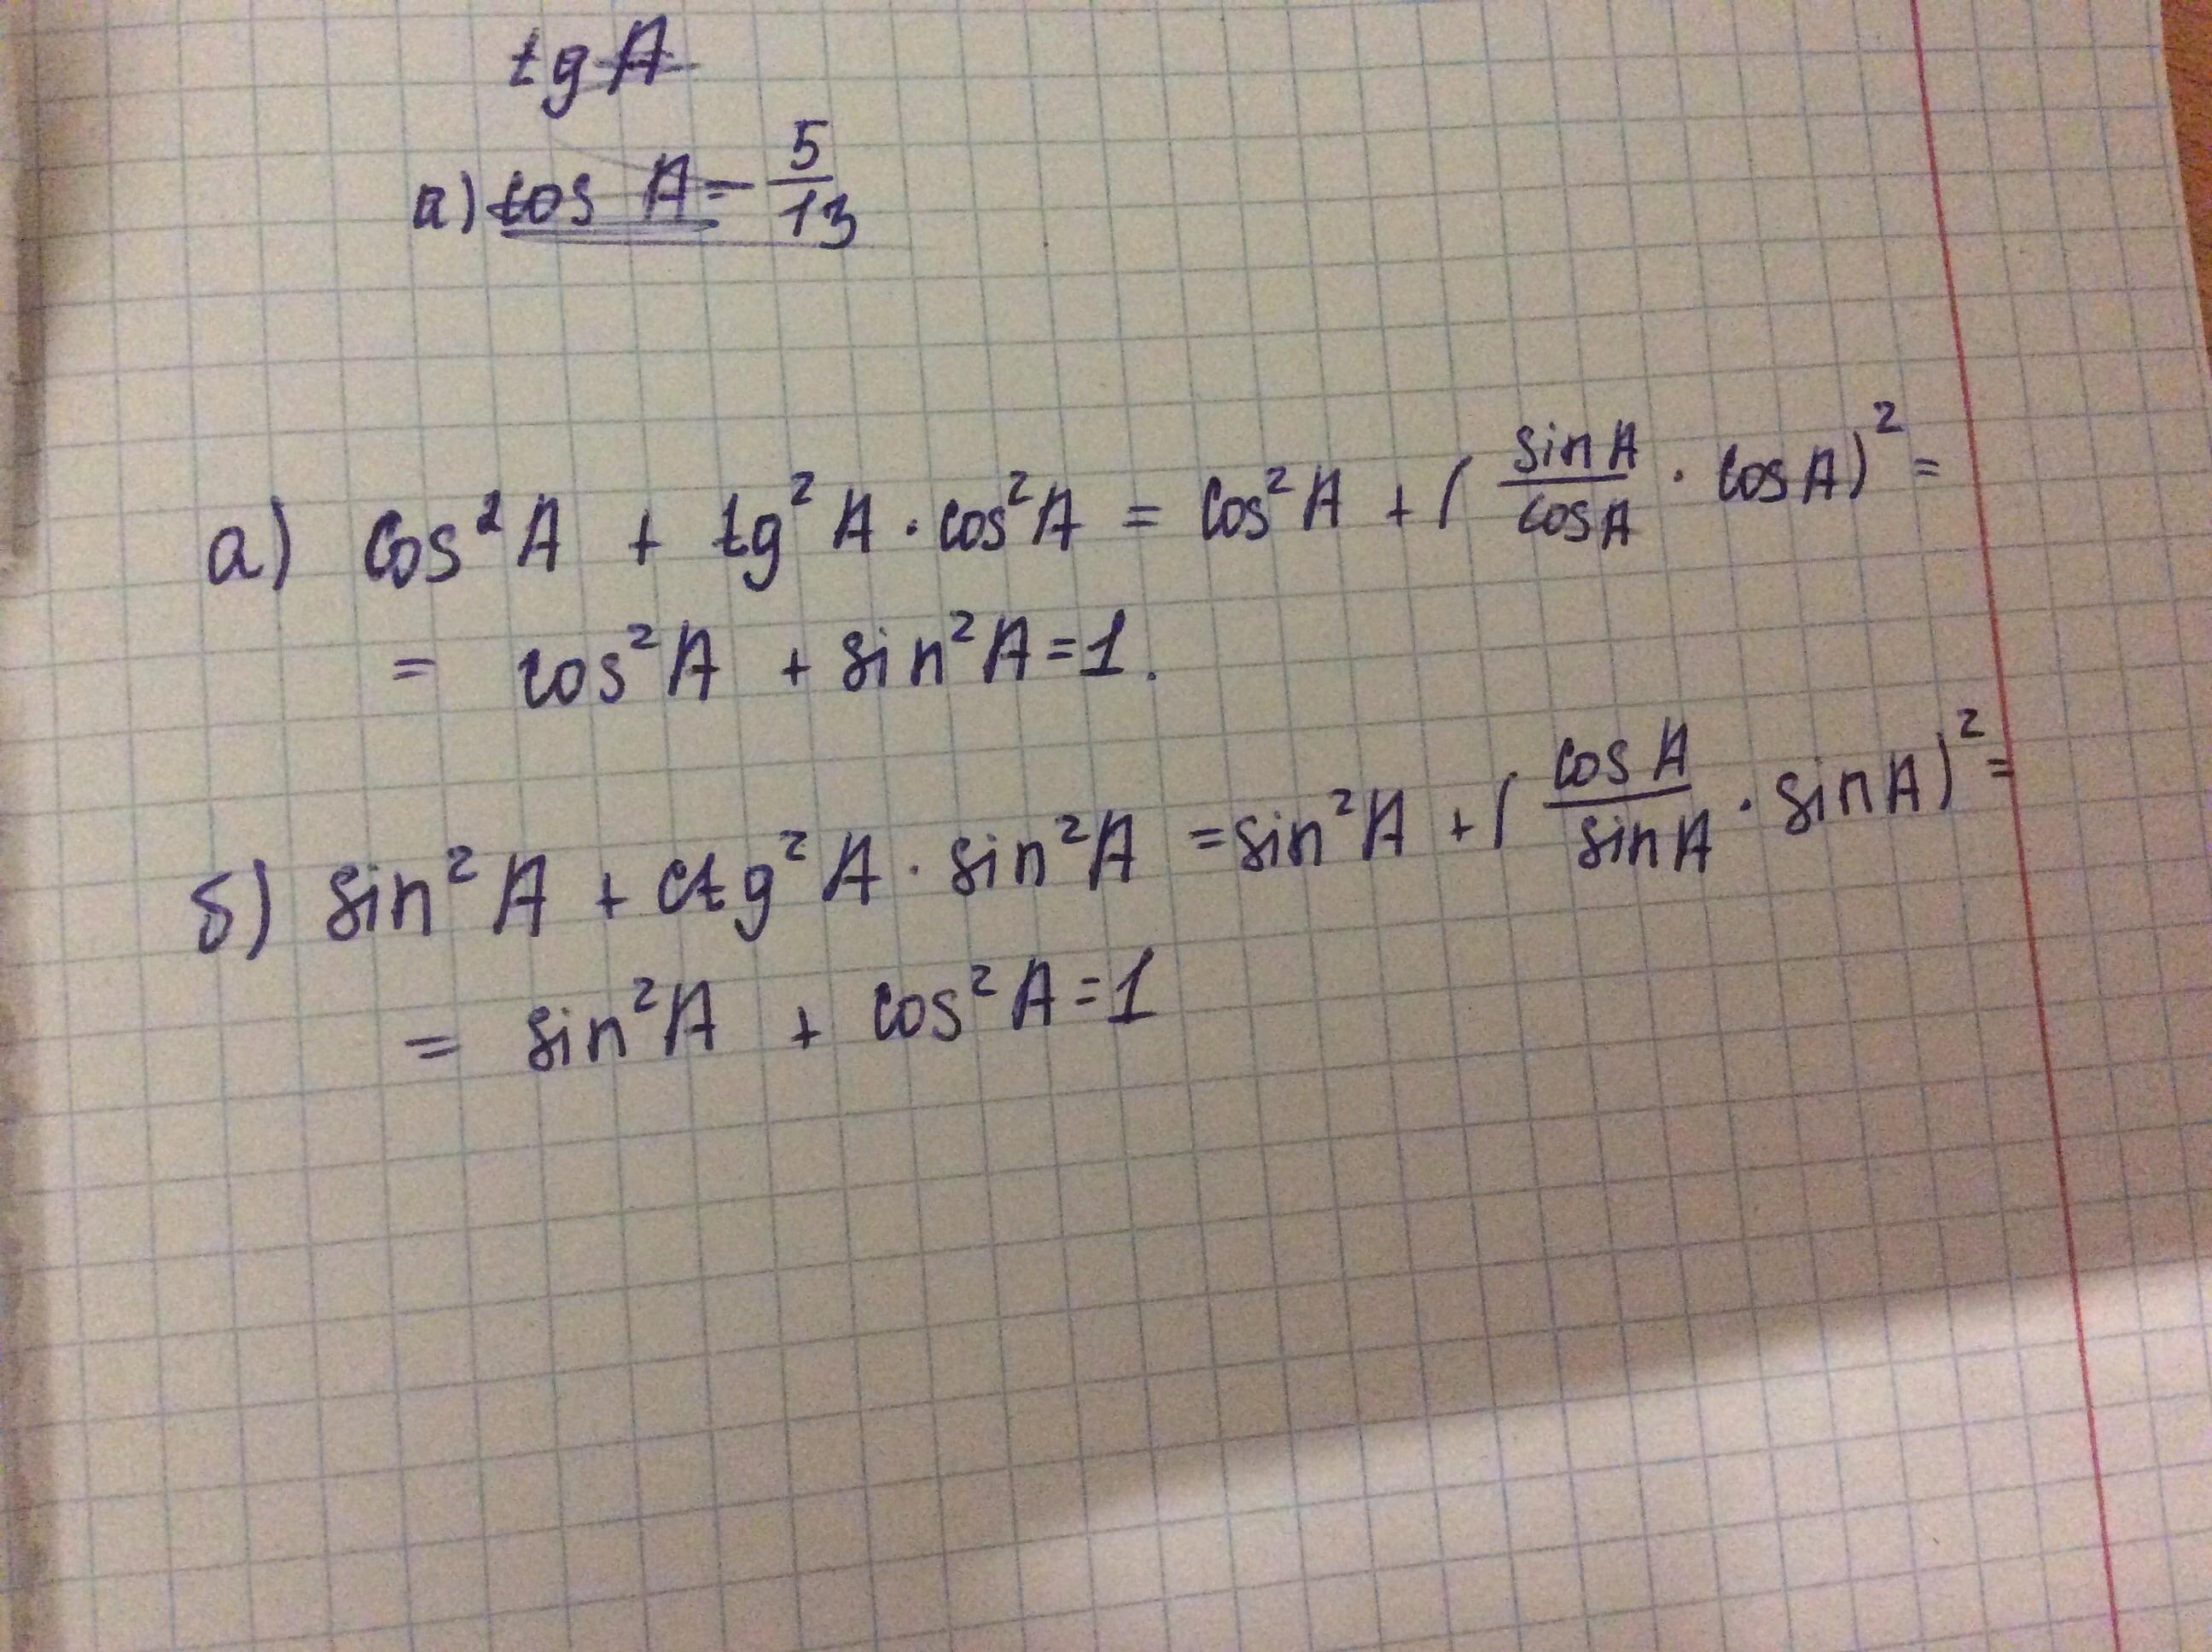 tg A
а) cos A = 5/13
а) cos²A + tg²A · cos²A = cos²A + (sin A/cos A · cos A)² =
= cos²A + sin²A = 1.
б) sin²A + ctg²A · sin²A = sin²A + (cos A/sin A · sin A)² =
= sin²A + cos²A = 1